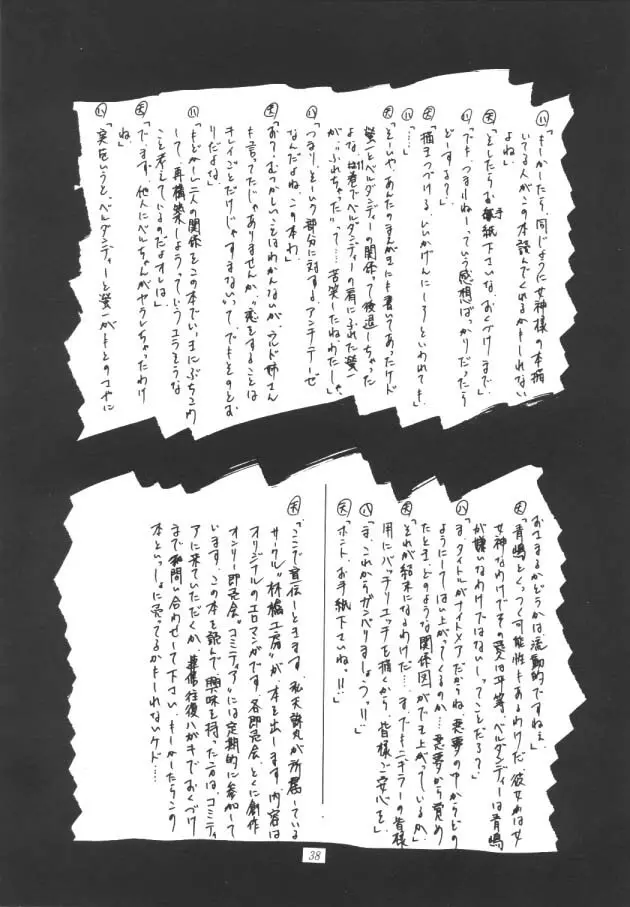 ㋩「もしかしたら、同じように女神様の本描
いてる人がこの本読んでくれるかもしれない
よね」
㋢「そしたらお手紙下さいな、おくづけまで」
㋩「でも、つまんねーっていう感想ばっかりだったら
どーする?」
㋢「描きつづける、いいかげんにしろといわれても」
㋩「…」
㋢「そーいや、あんたのまんがにも書いてあったケド
螢一とベルダンディーの関係って後退しちゃった
よな、巻でベルダンディーの肩にふれた螢一
が、"ふれちゃった"って…苦笑したねわたしゃ」
㋩「つまり、そーいう部分に対するアンチテーゼ
なんだよね、この本わ」
㋢「お?、むつかしいことはわかんないが、ウルド姉さん
も言ってたじゃありませんか、"恋をすることは
キレイごとだけじゃすまない"って、でもそのとお
りだよな」
㋩「もどかしい二人の関係をこの本でいっきにぶちこわ
して、再構築しようっていうエラそうな
こと考えているのだよオレは」
㋢「でまず、他人にベルちゃんがヤラレちゃったわけ
ね」
㋩「実をいうと、ベルダンディーと螢一がもとのさやに
おさまるかどうかは流動的ですねえ」
㋢「青嶋とくっつく可能性もあるわけだ、彼女は女
女神なわけでその愛は平等、ベルダンディーは青嶋
が嫌いなわけではない、ってことだろ?」
㋩「ま、タイトルがナイトメアだからね、悪夢の中からどの
ようにして這い上がってくるのか…悪夢から覚め
たとき、どのような関係図ができ上がっているか、
それが結末になるわけだ…、までもニチラーの皆様
用にバッチリエッチを描くから、皆様ご安心を」
㋩「ま、これからガンバりましょうっ!!」
㋢「ホント、お手紙下さいね!!」
㋢「ここで宣伝しときます、私天誅丸が所属している
サークル"林檎工房"が本を出します、内容は
オリジナルのエロマンガです、各即売会、とくに創作
オンリー即売会"コミティア"には定期的に参加して
います、この本を読んで、興味を持った方は、コミティ
アに来ていただくか、往復ハガキでおくづけ
まで問い合わせて下さい、もしかしたらこの
本といっしょに売ってるかもしれないケド…
38